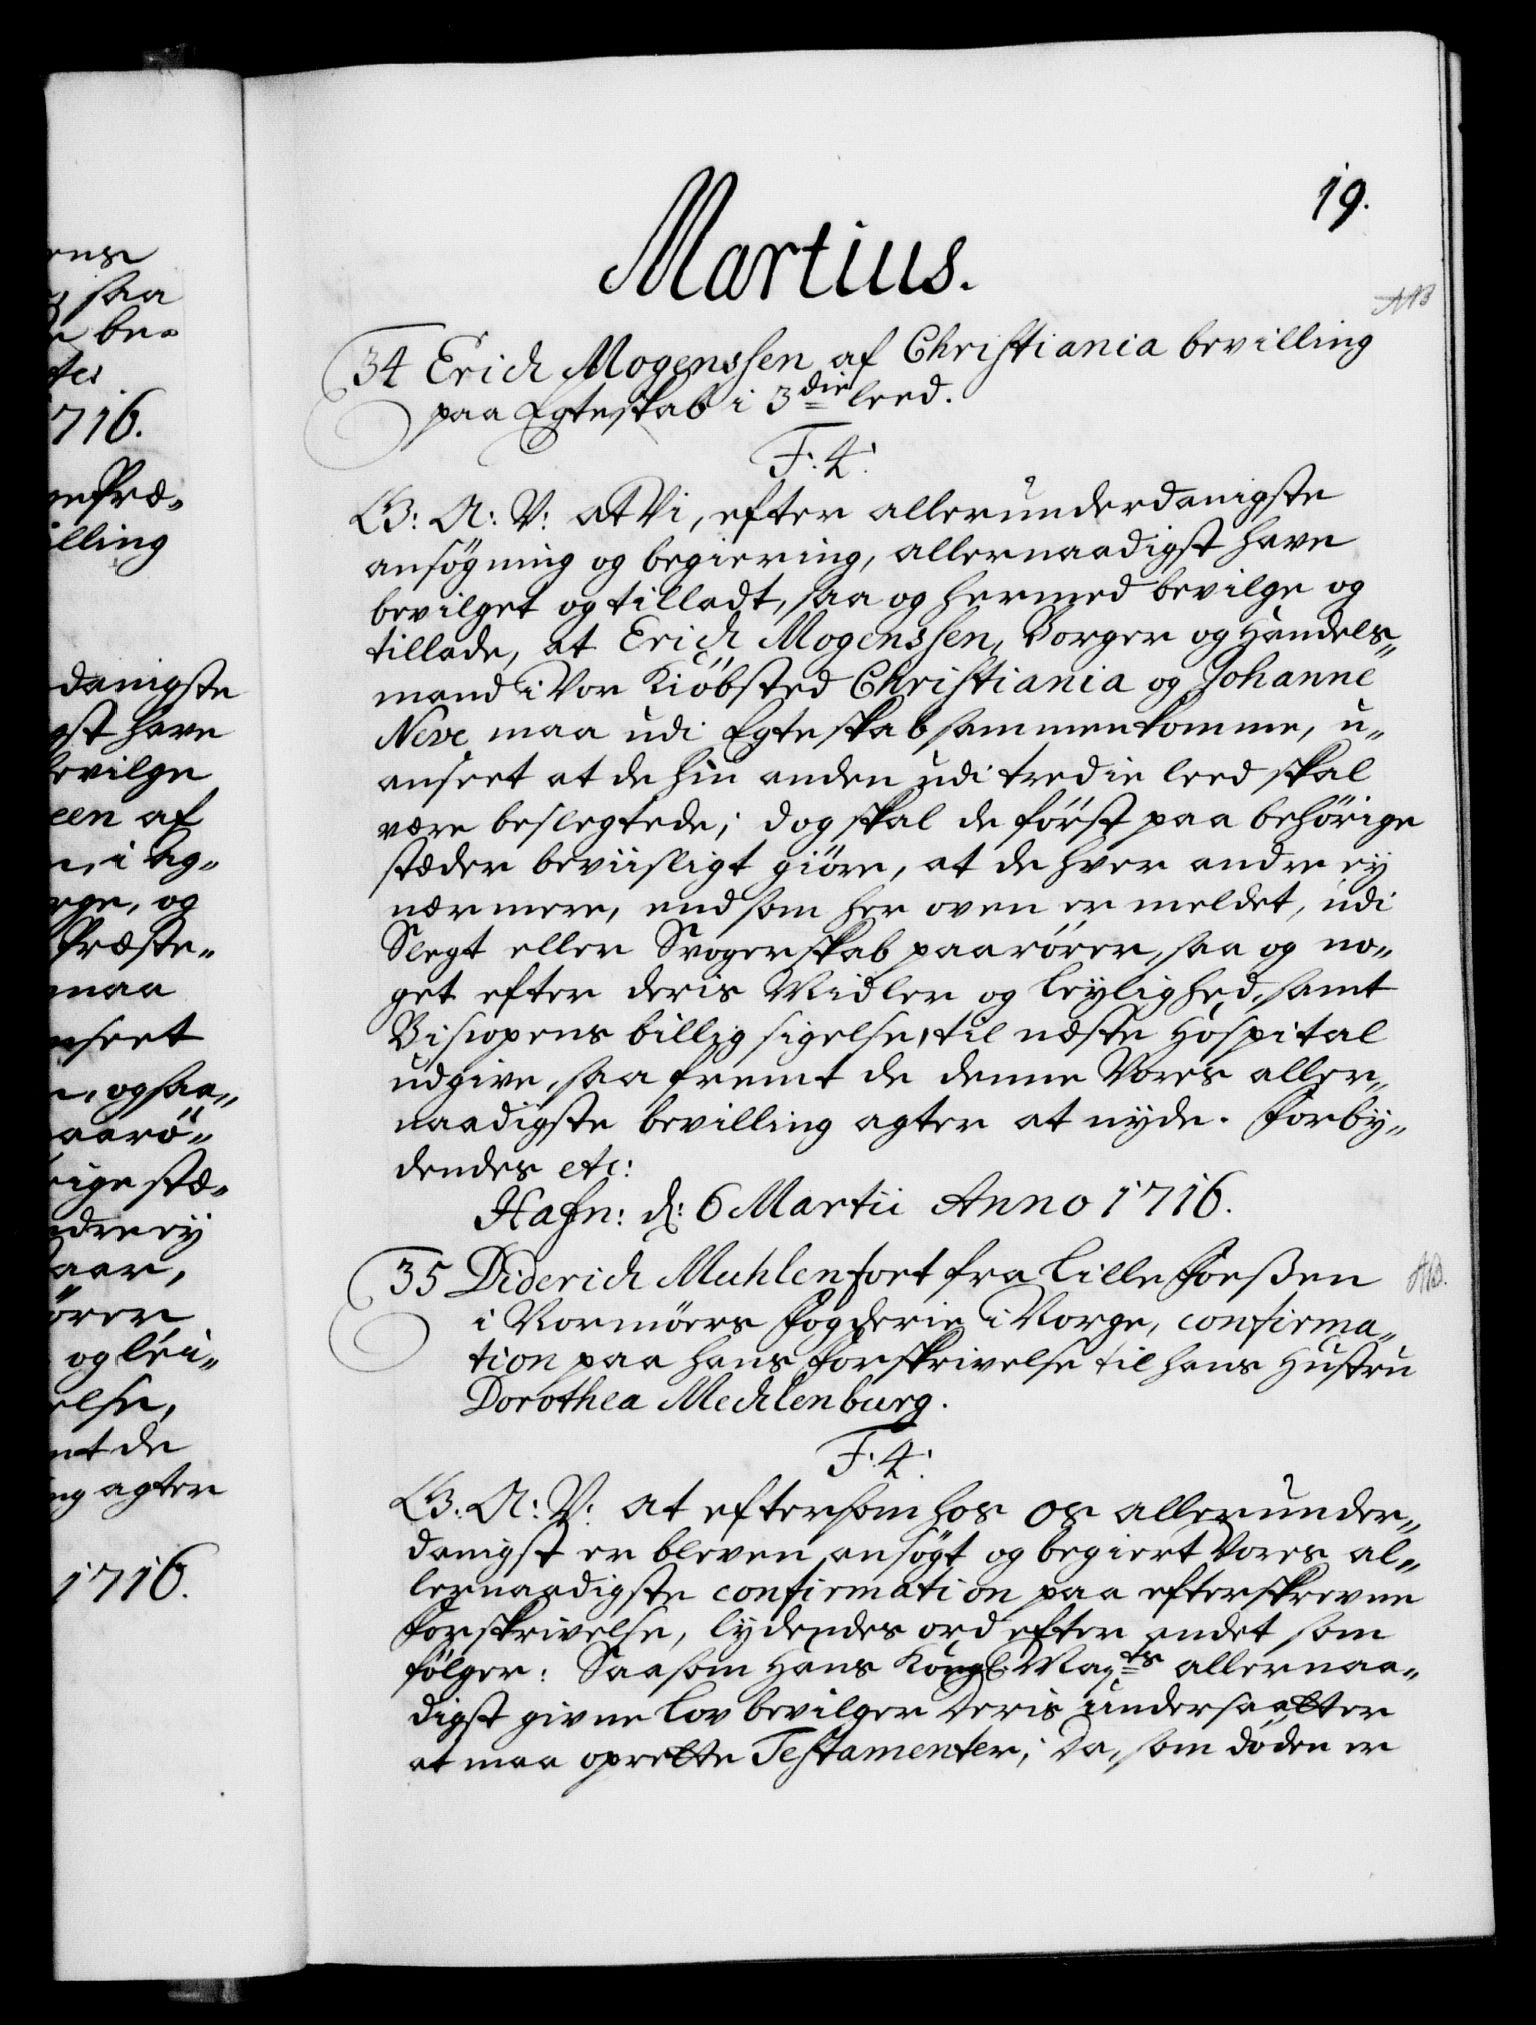 ens
saa
be-
1716.
Præ-
illing
danigste
st have
bevilge
een af
i Ag-
rge, og
Præste-
maa
nseet
, og saa-
aarö-
rige stæ-
ndre ey
aar,
örer
og lei-
else,
mt de
ng agter
1716.
19.
Martius.
34 Erich Mogenssen af Christiania bevilling
paa Egteskab i 3die leed.
F: 4:
G: A: V: at Vi, efter allerunderdanigste
ansögning og begiering, allernaadigst have
bevilget og tilladt, saa og hermed bevilge og
tillade, at Erich Mogenssen, Borger og Handels-
mand i Vor Kiöbsted Christiania og Johanne
Neve maa udi Egteskab sammenkomme, u-
anseet at de hin anden udi tredie leed skal
være beslegtede; dog skal de först paa behörige
stæder beviisligt giöre, at de hver andre ey
nærmere, end som her oven er meldet, udi
Slegt eller Svogerskab paarörer, saa og no-
get efter deris Midler og leylighed, samt
Bispens billig sigelse, til næste Hospital
udgive, saa fremt de denne Vores aller-
naadigste bevilling agter at nyde. Forby-
dendes etc:
Hafn: d: 6 Martii Anno 1716.
35 Diderich Muhlenfort fra Lille Foeßen
i Normöers Fogderie i Norge, confirma-
tion paa hans forskrivelse til hans Hustru
Dorothea Mechlenburg.
F: 4:
G: A: V: at eftersom hos os allerunder-
danigst er bleven ansögt og begiert Vores al-
lernaadigste confirmation paa efterskrevne
forskrivelse, lydendes ord efter andet som
fölger: Saasom Hans Kongl: Mayts allernaa-
digst givne Lov bevilger deris Undersaatter
at maa oprette Testamenter; da, som döden er